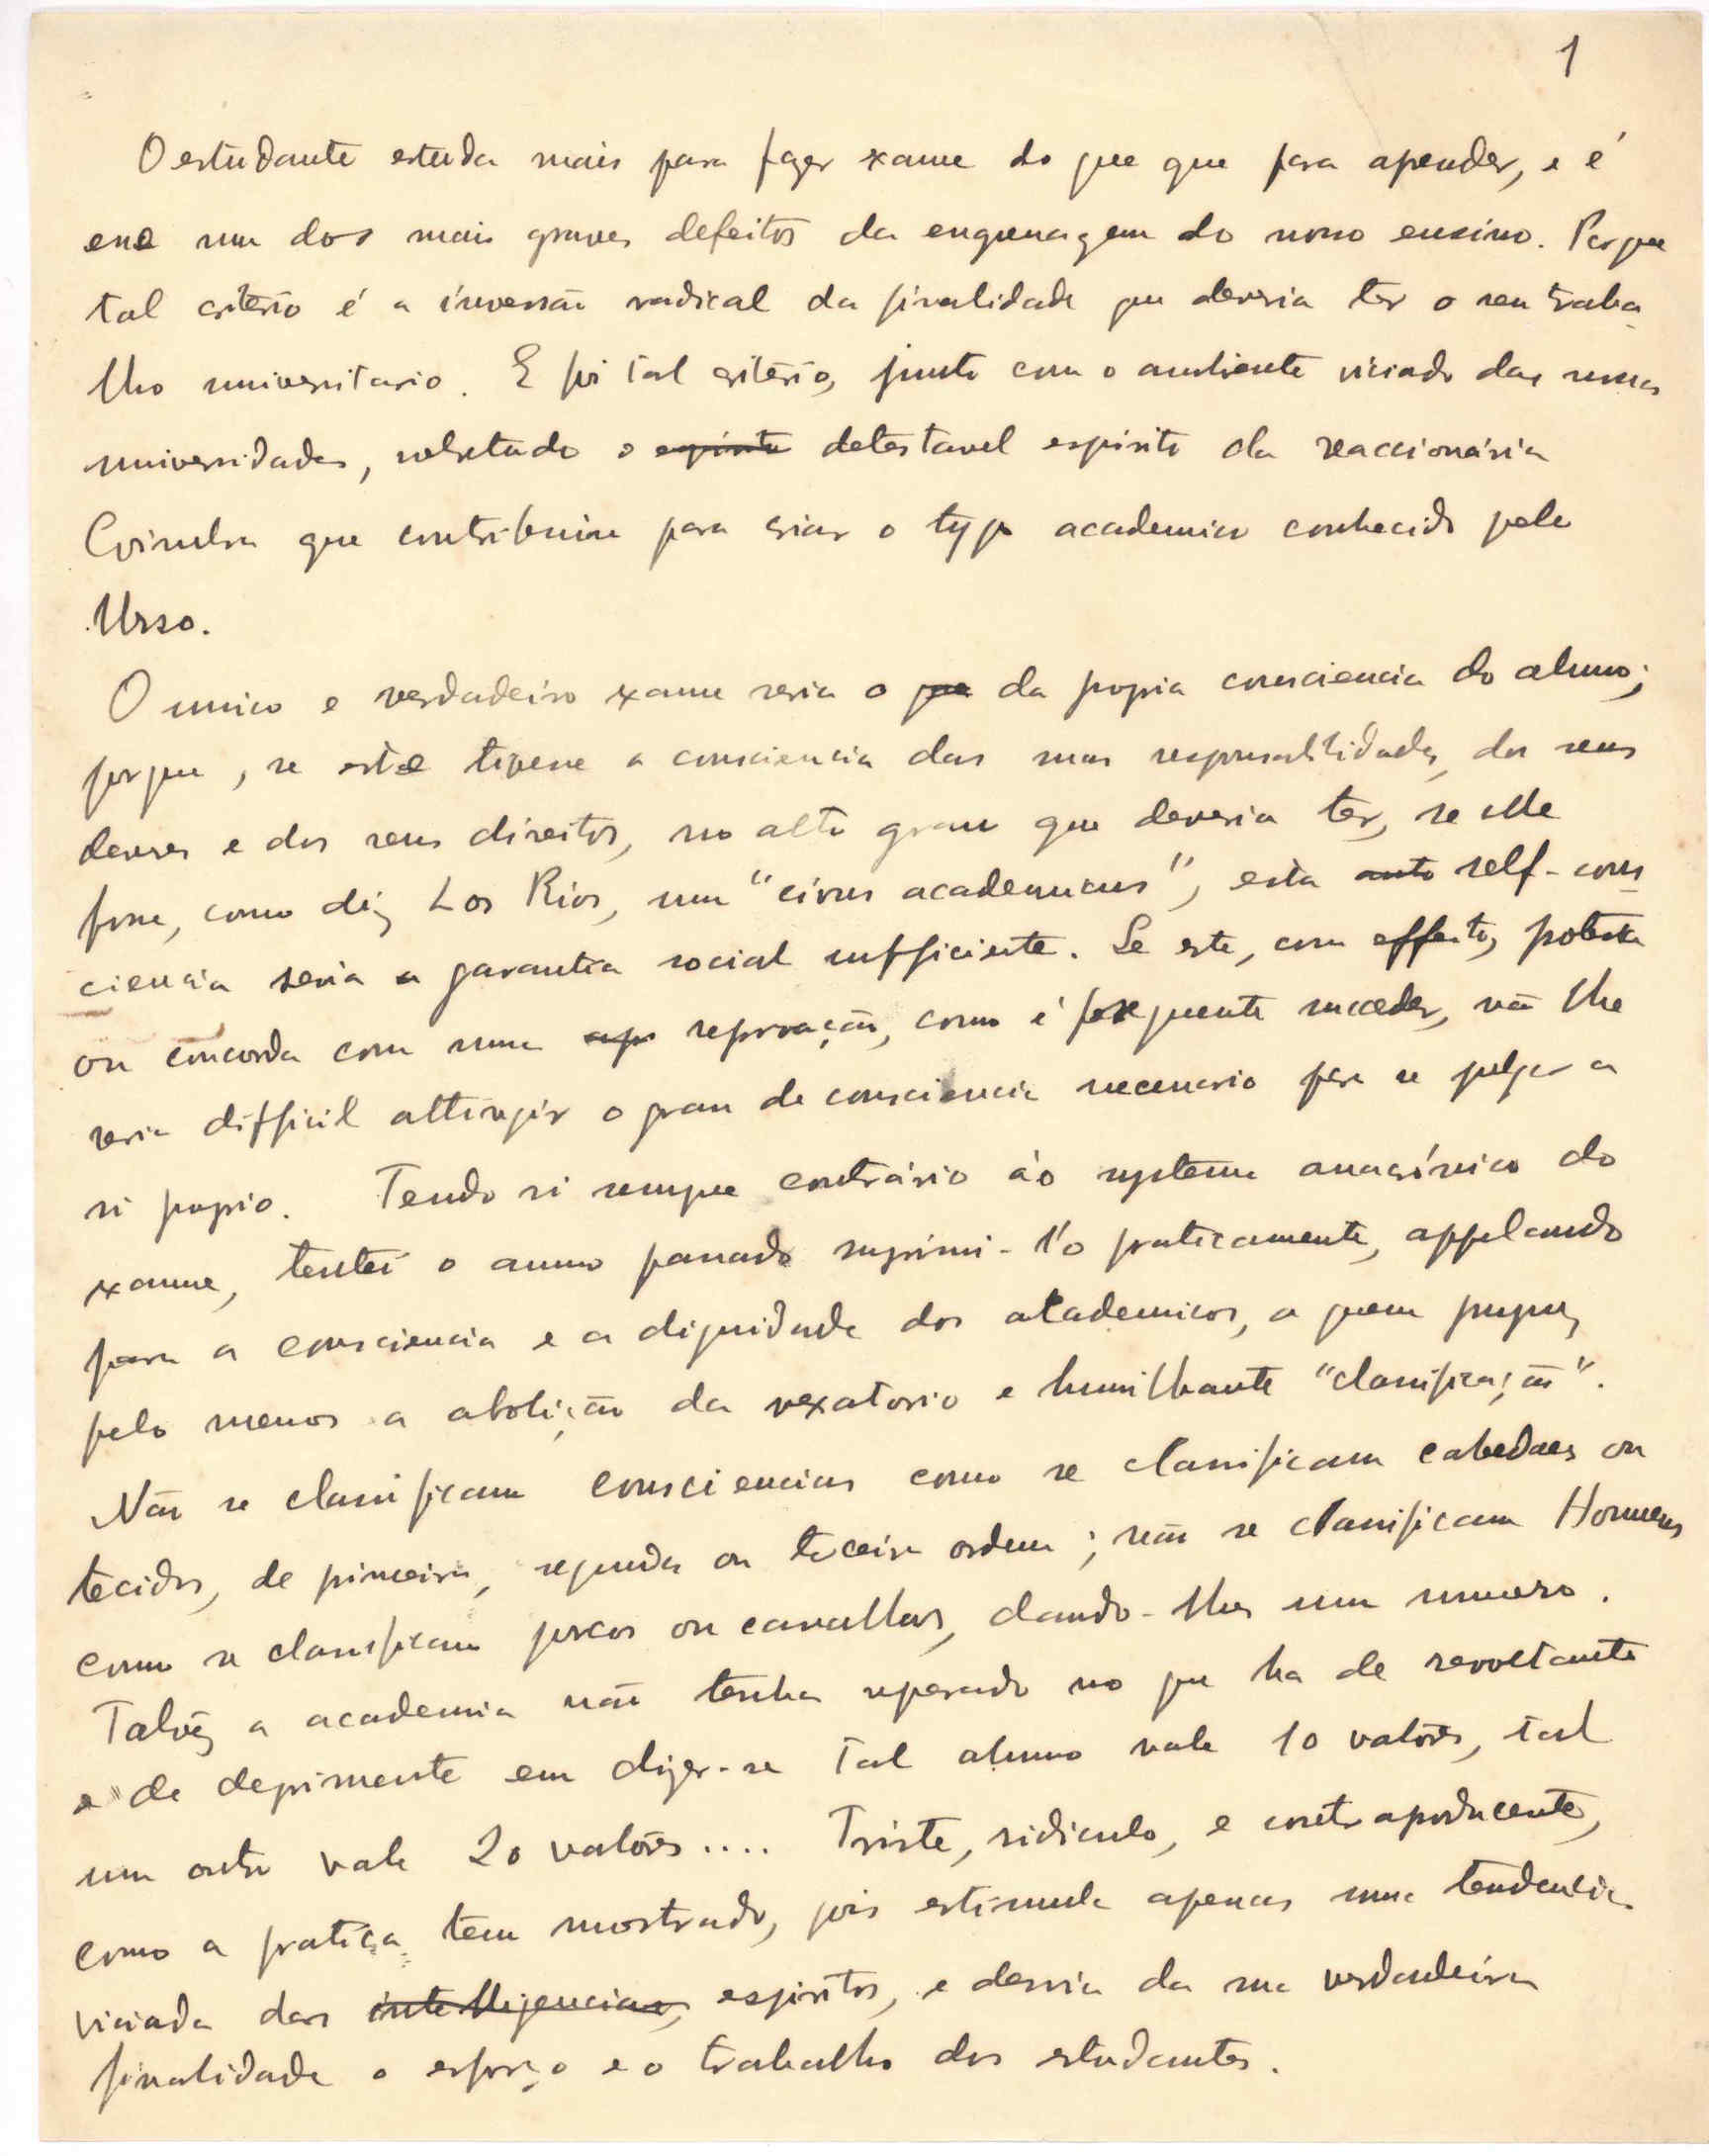 1
O estudante estuda mais para fazer exame do que que para aprender, e é
esse um dos mais graves defeitos da engrenagem do nosso ensino. Porque
tal critério é a inversão radical da finalidade que deveria ter o seu traba_
lho universitario. E foi tal critério, junto com o ambiente viciado das nossas
universidades, sobretudo o espirito detestavel espirito da reaccionária
Coimbra que contribuiu para criar o typo academico conhecido pelo
Urso.
O unico e verdadeiro exame seria o que da propria consciencia do alumno;
porque, se este tivesse a consciencia das suas responsabilidades, dos seus
deveres e dos seus direitos, no alto grau que deveria ter, se elle
fosse, como diz Los Rios, um "civus academicus", esta auto self-cons_
ciencia seria a garantia social sufficiente. Se este, com effeito, protesta
ou concorda com uma ap reprovação, como é frequente succeder, não lhe
seria difficil attingir o grau de consciencia necessario para se julgar a
si proprio. Tendo si sempre contrário áo systema anacrónico do
exame, tentei o anno passado suprimi-l'o praticamente, appelando
para a consciencia e a dignidade dos academicos, a quem propuz,
pelo menos a abolição da vexatorio e humilhante "classificação".
Não se classificam consciencias como se classificam cabedaes ou
tecidos, de primeira, segunda ou terceira ordem; não se classificam Homens
como se classificam porcos ou cavallos, dando-lhes um numero.
Talvêz a academia não tenha reparado no que ha de revoltante
e de deprimente em dizer-se tal alumno vale 10 valôres, tal
um outro vale 20 valôres.... Triste, ridiculo, e contraproducente,
como a pratica tem mostrado, pois estimula apenas uma tendencia
viciada das intelligencias, espiritos, e desvia da sua verdadeira
finalidade o esforço e o trabalho dos estudantes.